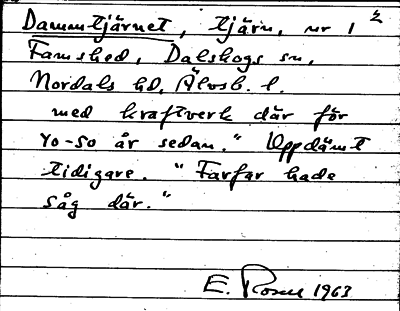 Dammtjärnet, tjärn, nr 1 2
Famshed, Dalskogs sn,
Nordals hd, Älvsb. l.
med kraftverk där för
40-50 år sedan." Uppdämt
tidigare. "Farfar hade
såg där."
E. Rosell 1963